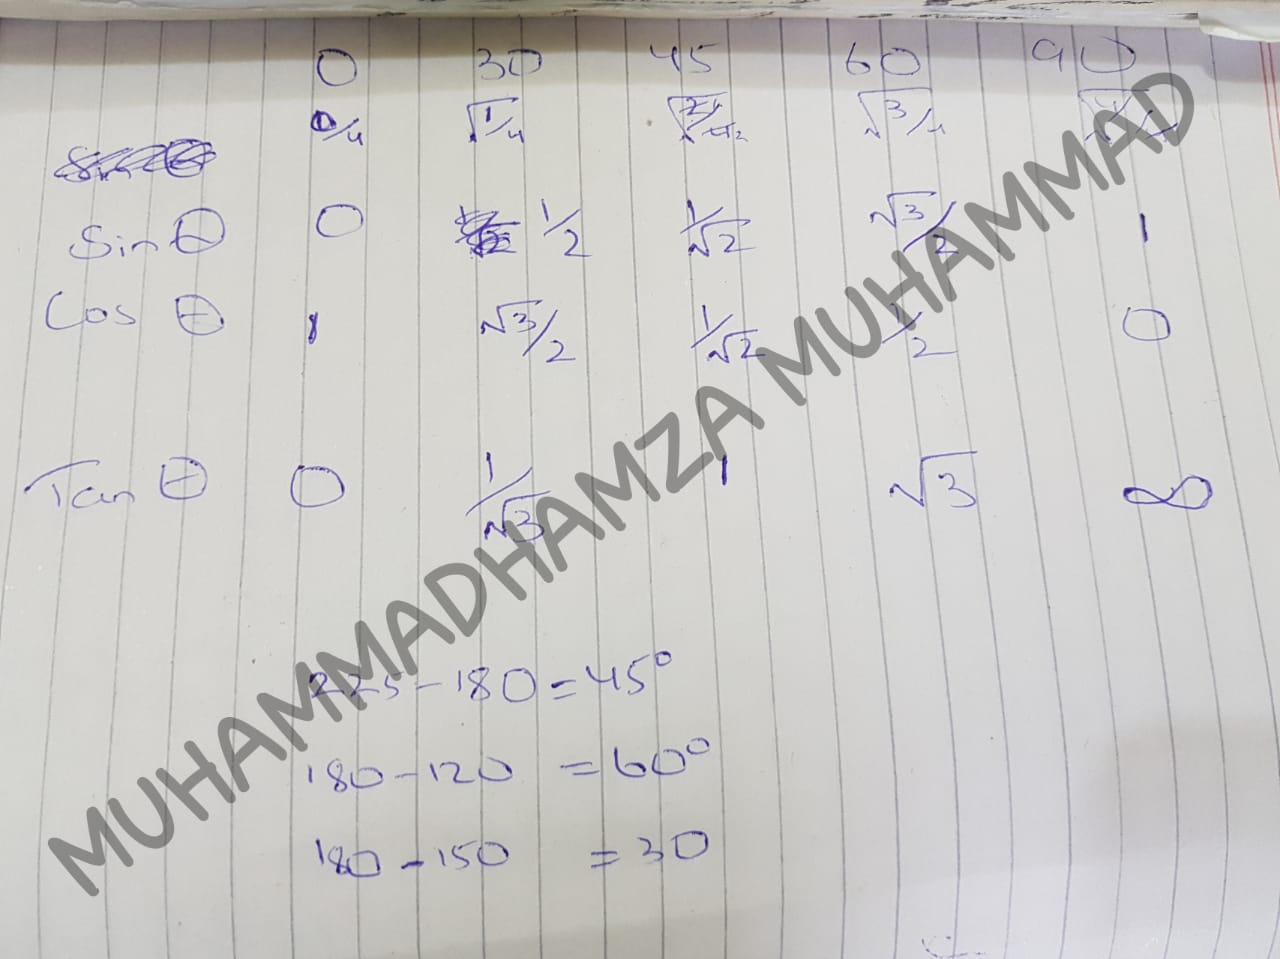 0 30 45 60 90
0/4 √1/4 √3/4
Sin θ 0 1/2 1/√2 √3/2 1
Cos θ 1 √3/2 1/√2 1/2 0
Tan θ 0 1/√3 1 √3 ∞
225-180=45°
180-120 =60°
180-150 =30
MUHAMMADHAMZA MUHAMMAD